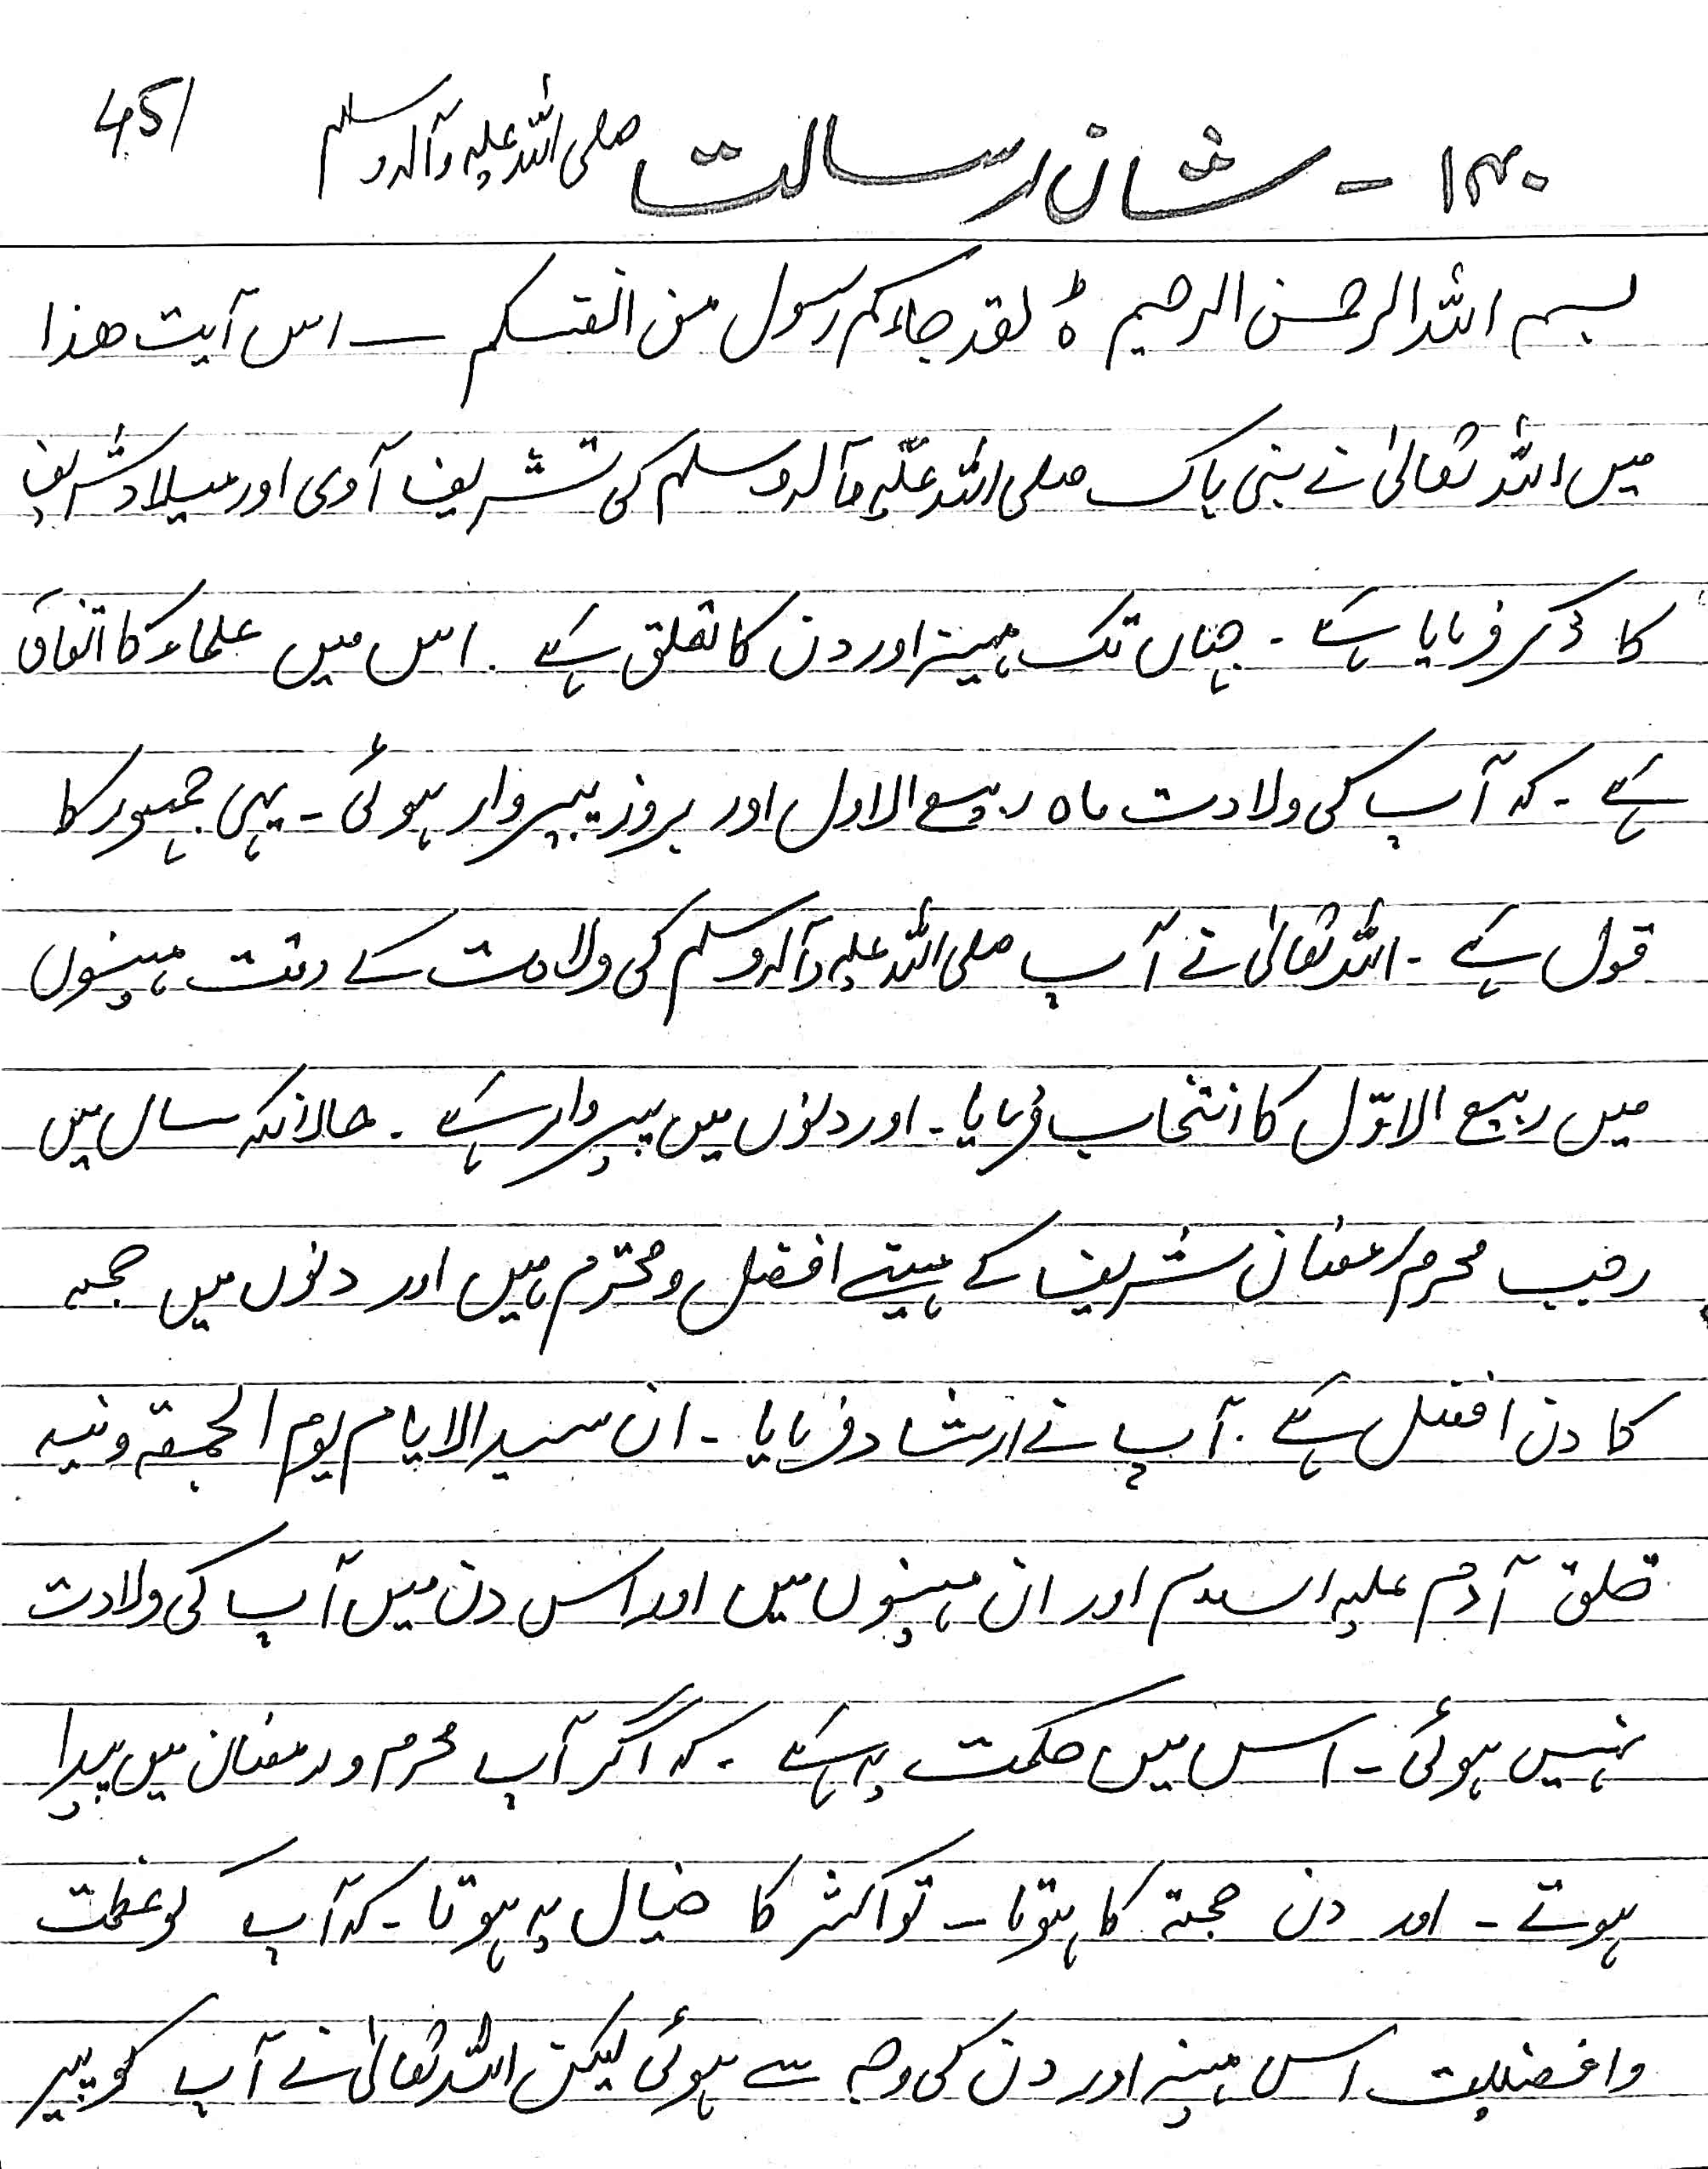 451
۱۴۰ - شان رسالت صلی اللہ علیہ وآلہ وسلم
بسم اللہ الرحمن الرحیم ہ لقد جاءکم رسول من انفسکم — اس آیت ھذا
میں اللہ تعالیٰ نے نبی پاک صلی اللہ علیہ وآلہ وسلم کی تشریف آوری اور میلاد شریف
کا ذکر فرمایا ہے - جہاں تک مہینہ اور دن کا تعلق ہے . اس میں علماء کا اتفاق
ہے - کہ آپ کی ولادت ماہ ربیع الاول اور بروز پیروار ہوئی - یہی جمہور کا
قول ہے - اللہ تعالیٰ نے آپ صلی اللہ علیہ وآلہ وسلم کی ولادت کے وقت مہینوں
میں ربیع الاوّل کا انتخاب فرمایا - اور دنوں میں پیروار ہے - حالانکہ سال میں
رجب محرم رمضان شریف کے مہینے افضل و محترم ہیں اور دنوں میں جمعہ
کا دن افضل ہے . آپ نے ارشاد فرمایا - ان سید الایام یوم الجمعۃ وفیہ
خلق آدم علیہ السلام اور ان مہینوں میں اور اس دن میں آپ کی ولادت
نہیں ہوئی - اس میں حکمت یہ ہے - کہ اگر آپ محرم و رمضان میں پیدا
ہوتے - اور دن جمعۃ کا ہوتا - تو اکثر کا خیال یہ ہوتا - کہ آپ کو عظمت
وافضلیت اس مہینہ اور دن کی وجہ سے ہوئی لیکن اللہ تعالیٰ نے آپ کو پیر